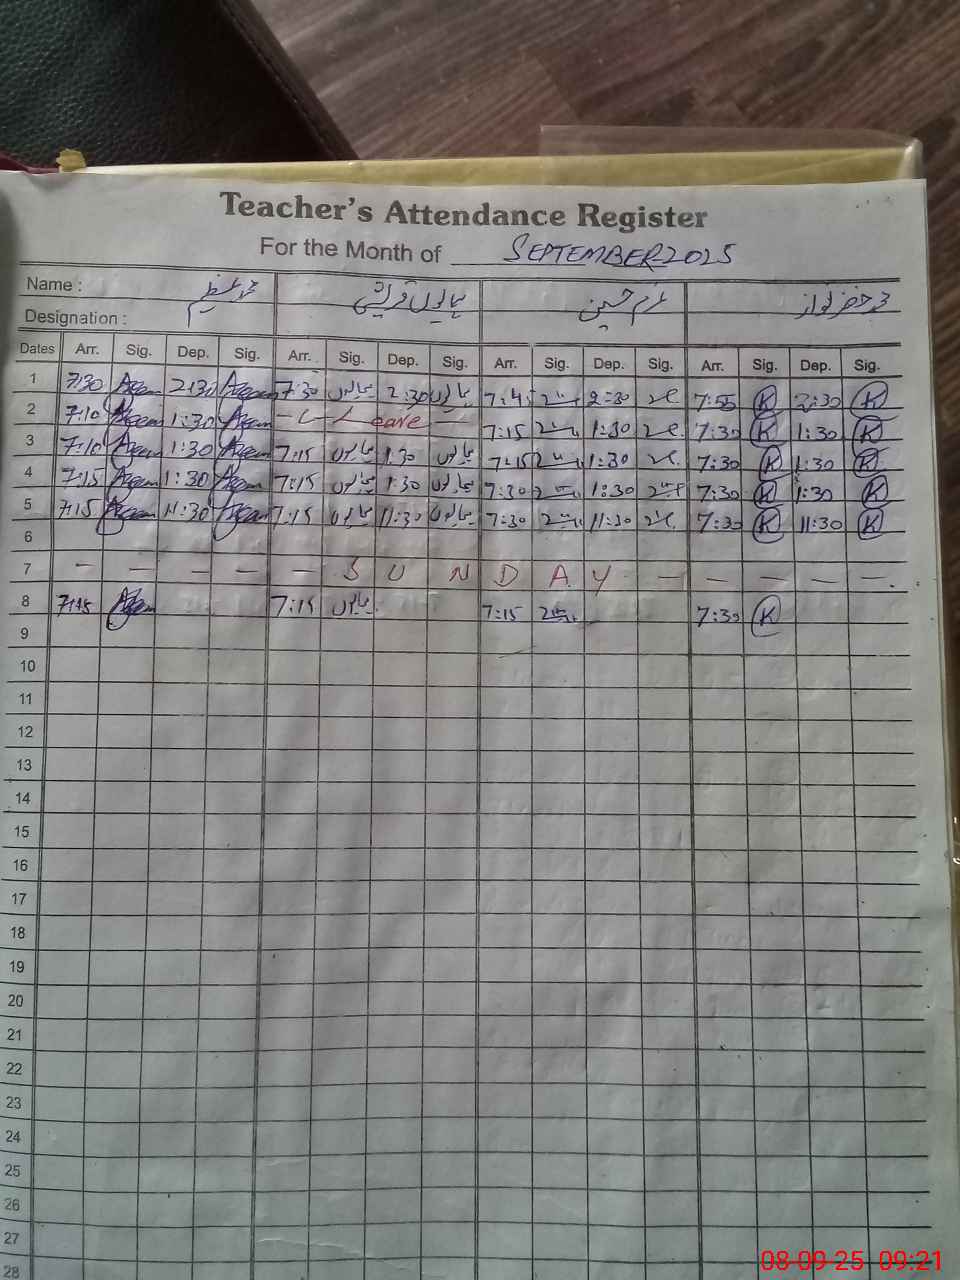 Teacher's Attendance Register
For the Month of SEPTEMBER 2025
Name : محمد عظیم ہمایوں قریشی خرم حسین محمد خضر نواز
Designation :
Dates Arr. Sig. Dep. Sig. Arr. Sig. Dep. Sig. Arr. Sig. Dep. Sig. Arr. Sig. Dep. Sig.
1 7:30 Azeem 2:30 Azeem 7:30 ہمایوں 2:30 ہمایوں 2:30 7:55 K 2:30 K
2 7:10 Azeem 1:30 Azeem - L - Leave - 7:15 1:30 7:30 K 1:30 K
3 7:10 Azeem 1:30 Azeem 7:15 ہمایوں 1:30 ہمایوں 7:15 1:30 7:30 K 1:30 K
4 7:15 Azeem 1:30 Azeem 7:15 ہمایوں 1:30 ہمایوں 7:30 1:30 7:30 K 1:30 K
5 7:15 Azeem 11:30 Azeem 7:15 ہمایوں 11:30 ہمایوں 7:30 11:30 7:30 K 11:30 K
6
7 - - - - - S U N D A Y - - - - -
8 7:15 Azeem 7:15 ہمایوں 7:15 7:30 K
9
10
11
12
13
14
15
16
17
18
19
20
21
22
23
24
25
26
27
28
08-09-25 09:21